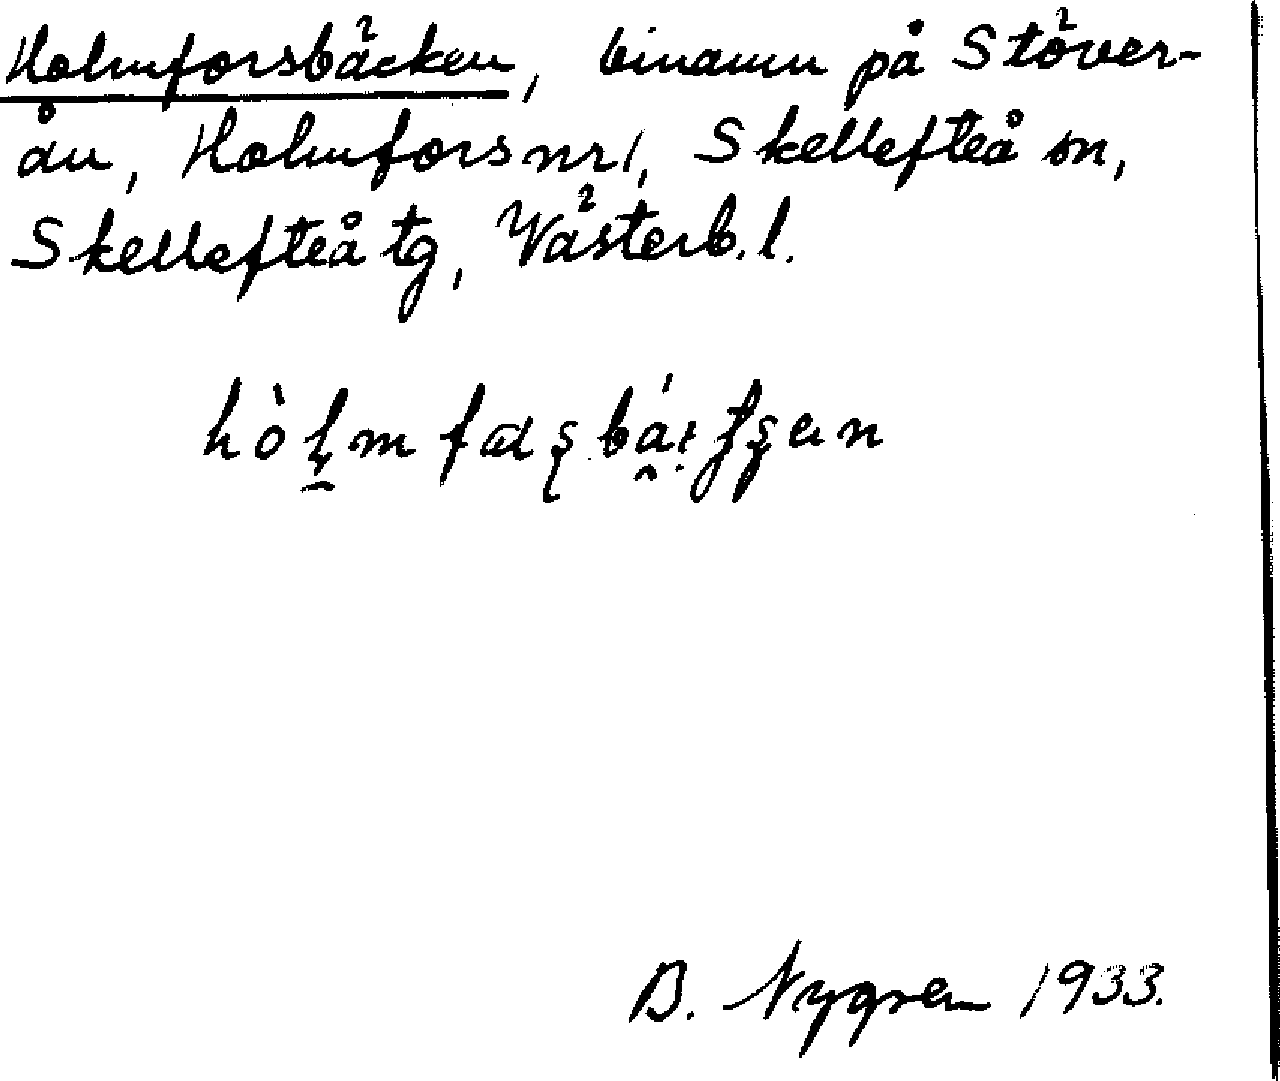 Holmforsbäcken, binamn på Stöver-
ån, Holmfors nr 1, Skellefteå sn,
Skellefteå tg, Västerb. l.
B. Nygren 1933.